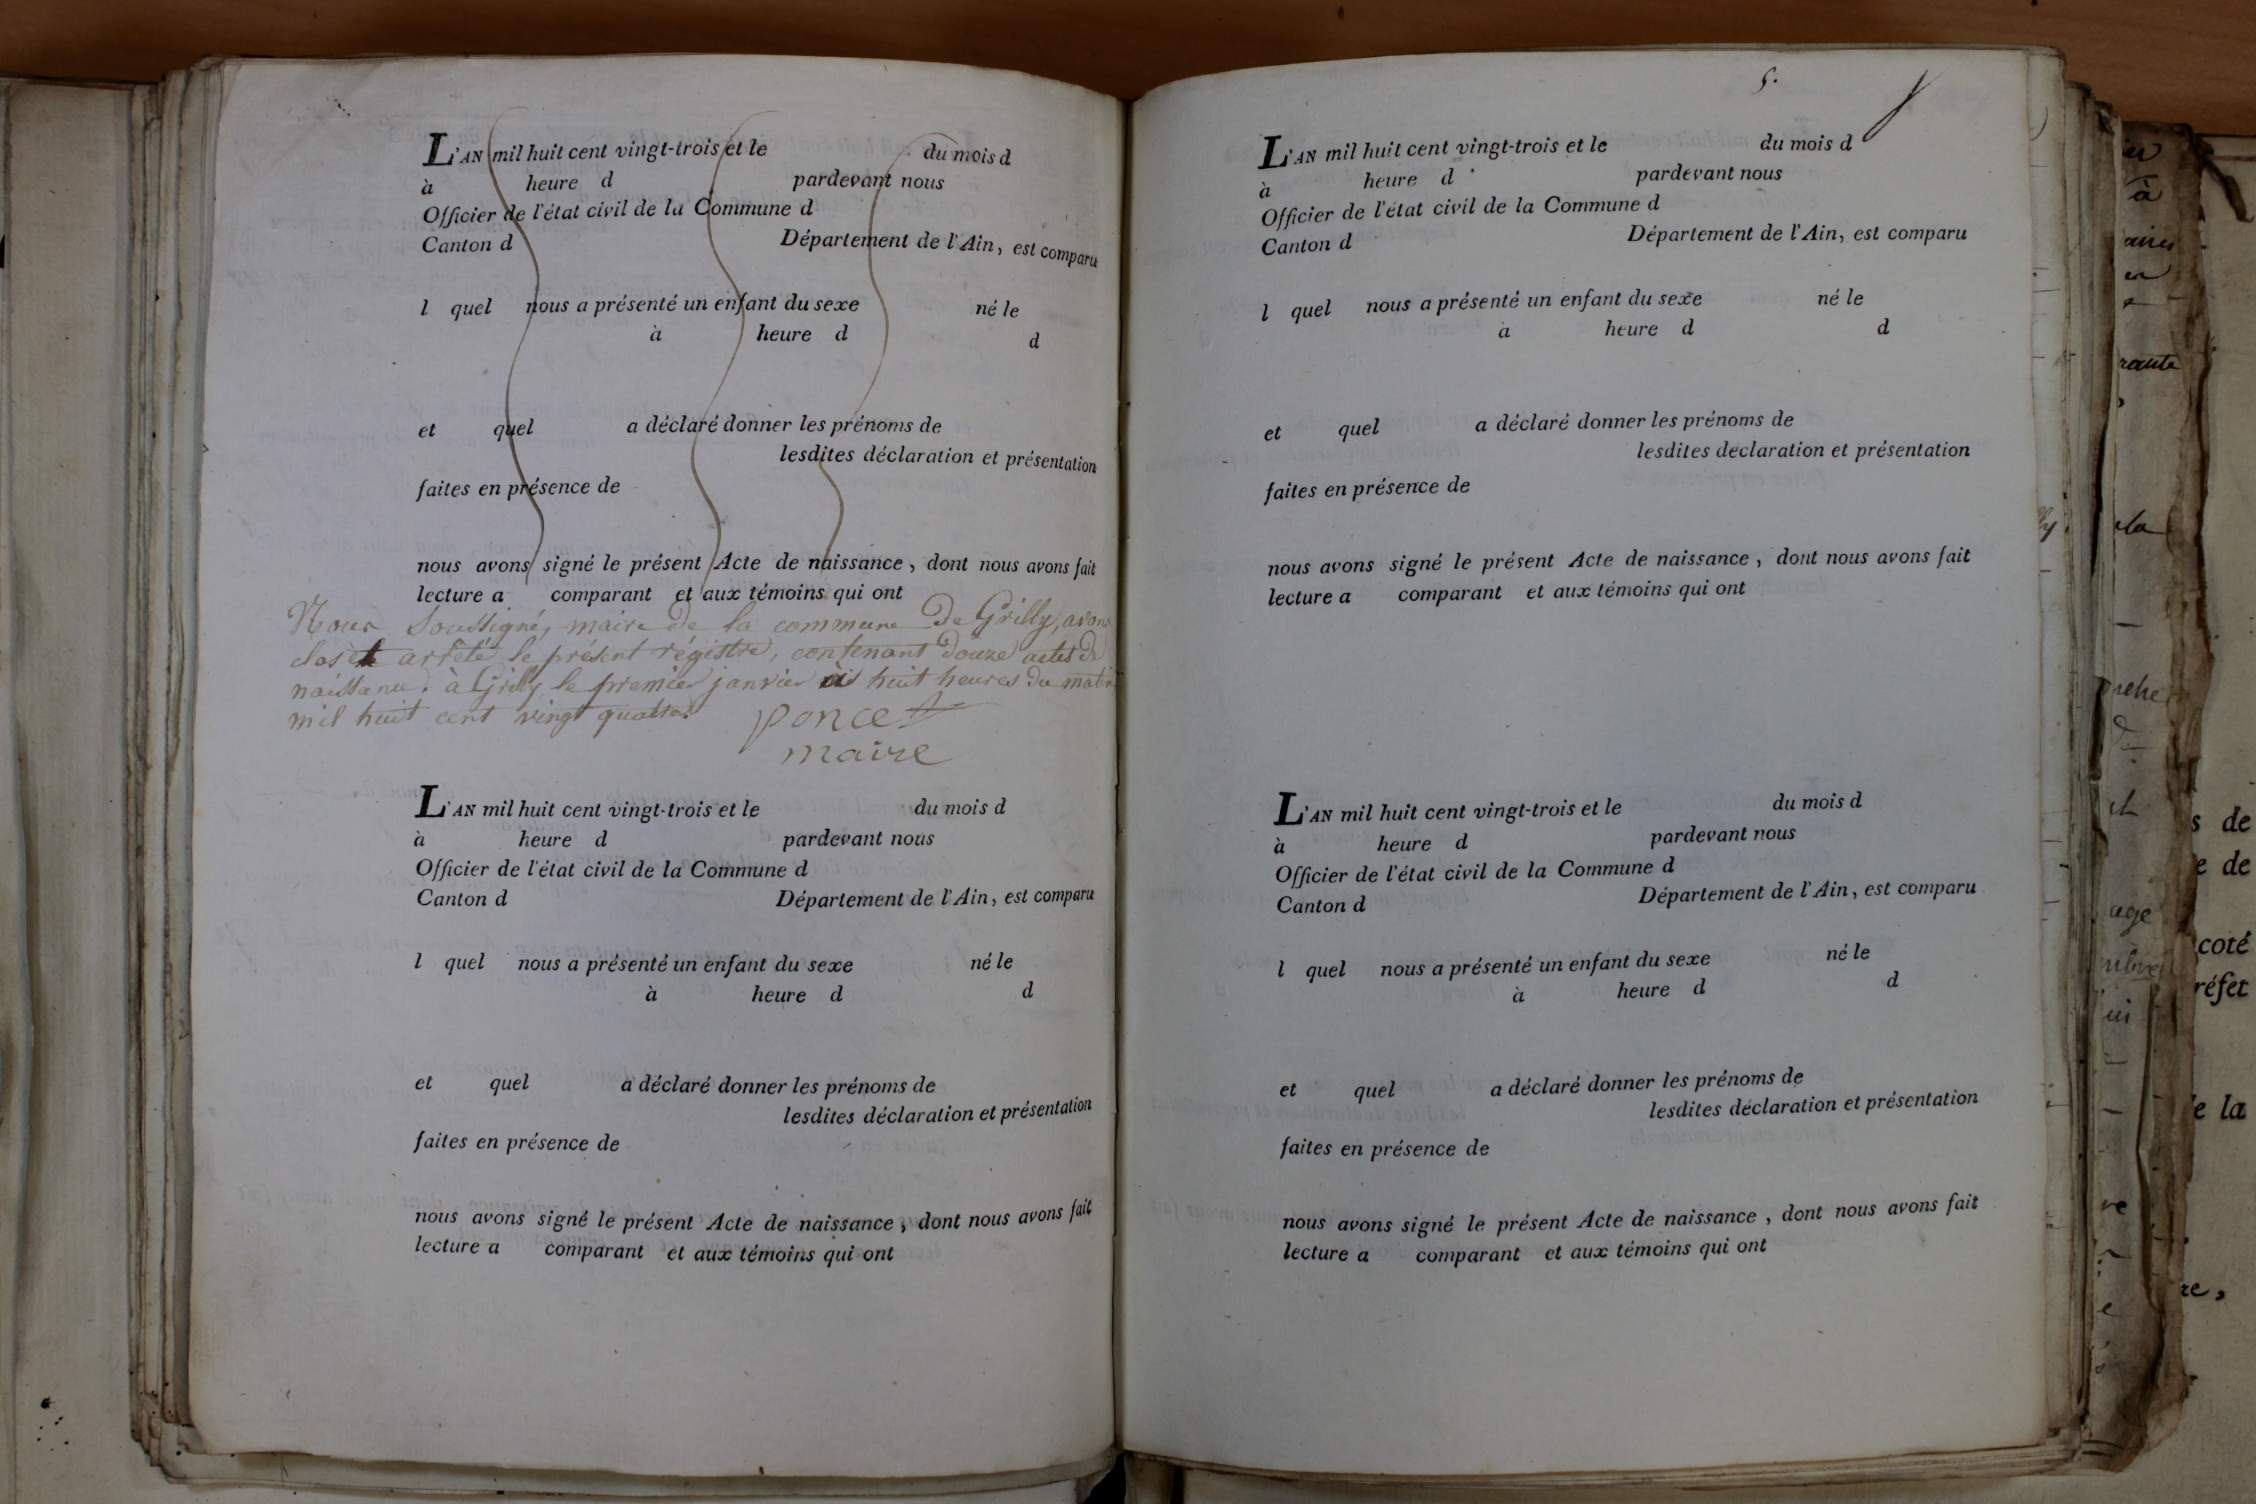 L'AN mil huit cent vingt-trois et le du mois d
à heure d pardevant nous
Officier de l'état civil de la Commune d
Canton d Département de l'Ain, est comparu
l quel nous a présenté un enfant du sexe né le
à heure d d
et quel a déclaré donner les prénoms de
lesdites déclaration et présentation
faites en présence de
nous avons signé le présent Acte de naissance, dont nous avons fait
lecture a comparant et aux témoins qui ont
Nous soussigné, maire de la commune de Grilly, avons
clos et arrêté le présent régistre, contenant douze actes de
naissance. à Grilly le premier janvier à huit heures du matin
mil huit cent vingt quatre.
poncet
maire
L'AN mil huit cent vingt-trois et le du mois d
à heure d pardevant nous
Officier de l'état civil de la Commune d
Canton d Département de l'Ain, est comparu
l quel nous a présenté un enfant du sexe né le
à heure d d
et quel a déclaré donner les prénoms de
lesdites déclaration et présentation
faites en présence de
nous avons signé le présent Acte de naissance, dont nous avons fait
lecture a comparant et aux témoins qui ont
5.
L'AN mil huit cent vingt-trois et le du mois d
à heure d pardevant nous
Officier de l'état civil de la Commune d
Canton d Département de l'Ain, est comparu
l quel nous a présenté un enfant du sexe né le
à heure d d
et quel a déclaré donner les prénoms de
lesdites declaration et présentation
faites en présence de
nous avons signé le présent Acte de naissance, dont nous avons fait
lecture a comparant et aux témoins qui ont
L'AN mil huit cent vingt-trois et le du mois d
à heure d pardevant nous
Officier de l'état civil de la Commune d
Canton d Département de l'Ain, est comparu
l quel nous a présenté un enfant du sexe né le
à heure d d
et quel a déclaré donner les prénoms de
lesdites déclaration et présentation
faites en présence de
nous avons signé le présent Acte de naissance, dont nous avons fait
lecture a comparant et aux témoins qui ont
s de
e de
coté
réfet
e la
re,